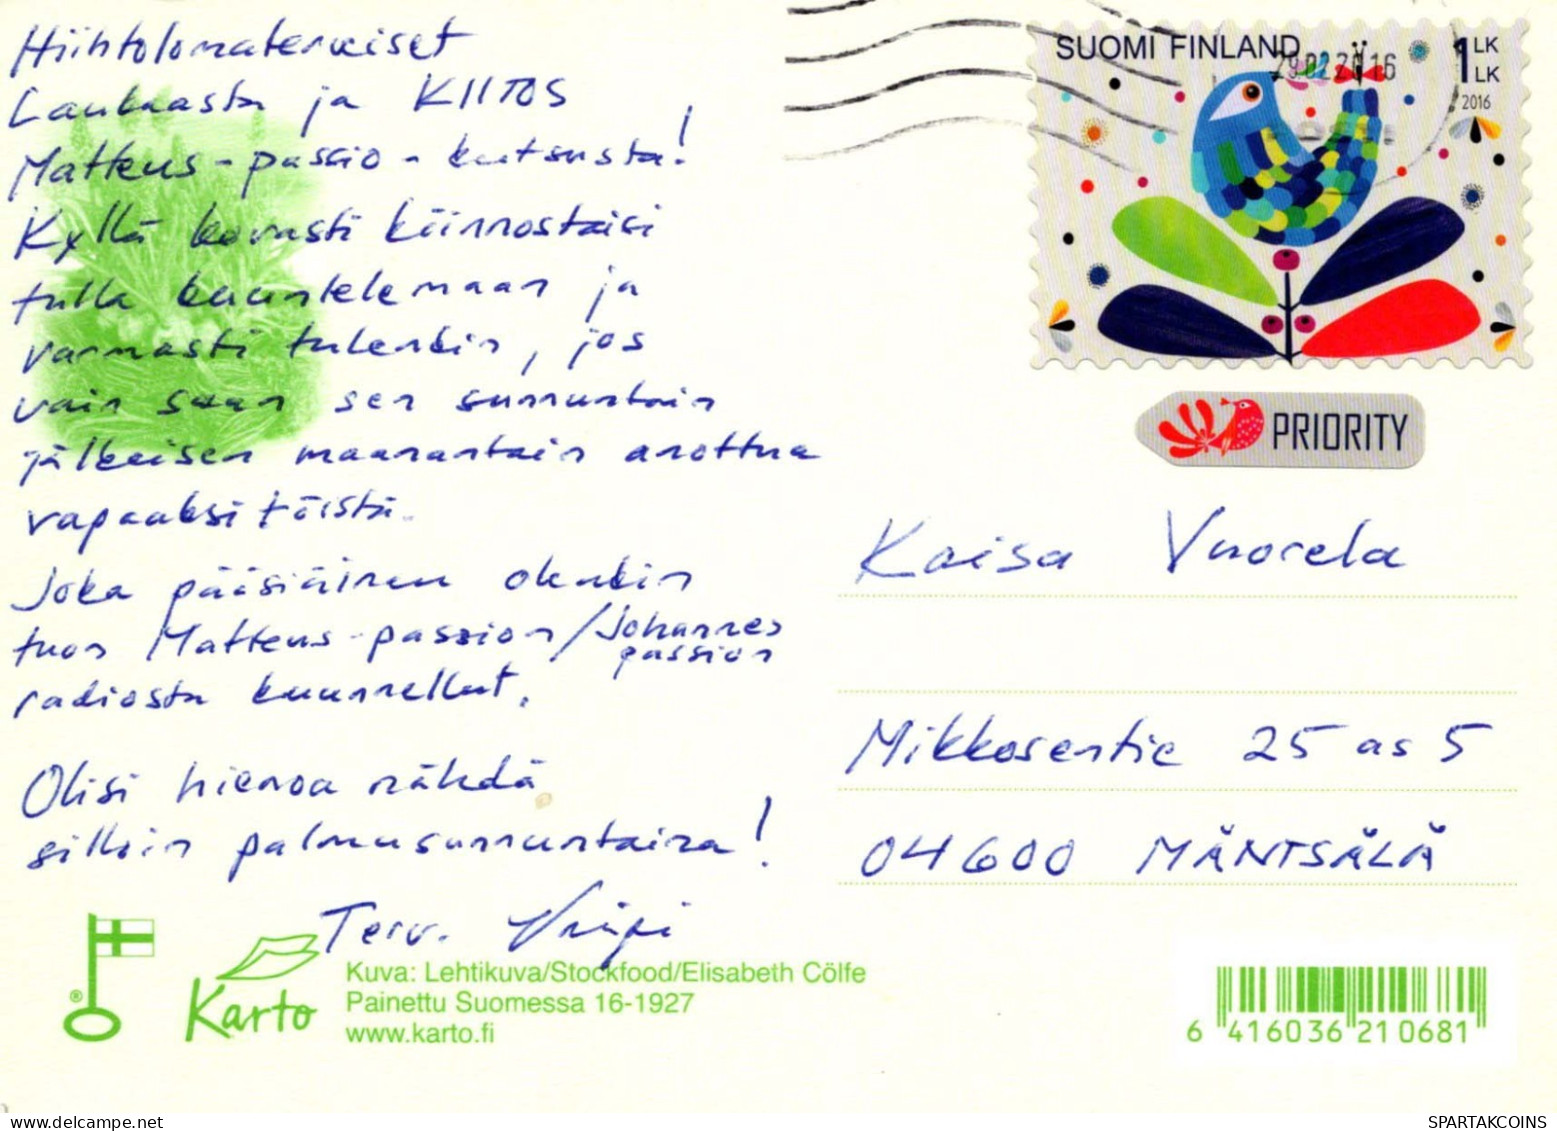 Hiihtolomaterveiset
Laukaasta ja KIITOS
Matteus-passio-kutsusta!
Kyllä kovasti kiinnostaisi
tulla kuuntelemaan ja
varmasti tulenkin, jos
vain saan sen sunnuntain
jälkeisen maanantain anottua
vapaaksi töistä.
Joka pääsiäinen olenkin
tuon Matteus-passion/Johannes
passion
radiosta kuunnellut.
Olisi hienoa nähdä
silloin palmusunnuntaina!
Terv.
SUOMI FINLAND
29022016
1 LK
LK
2016
PRIORITY
Kaisa Vuorela
Mikkosentie 25 as 5
04600 MÄNTSÄLÄ
®
Karto
Kuva: Lehtikuva/Stockfood/Elisabeth Cölfe
Painettu Suomessa 16-1927
www.karto.fi
6 416036 210681
SPARTAKCOINS